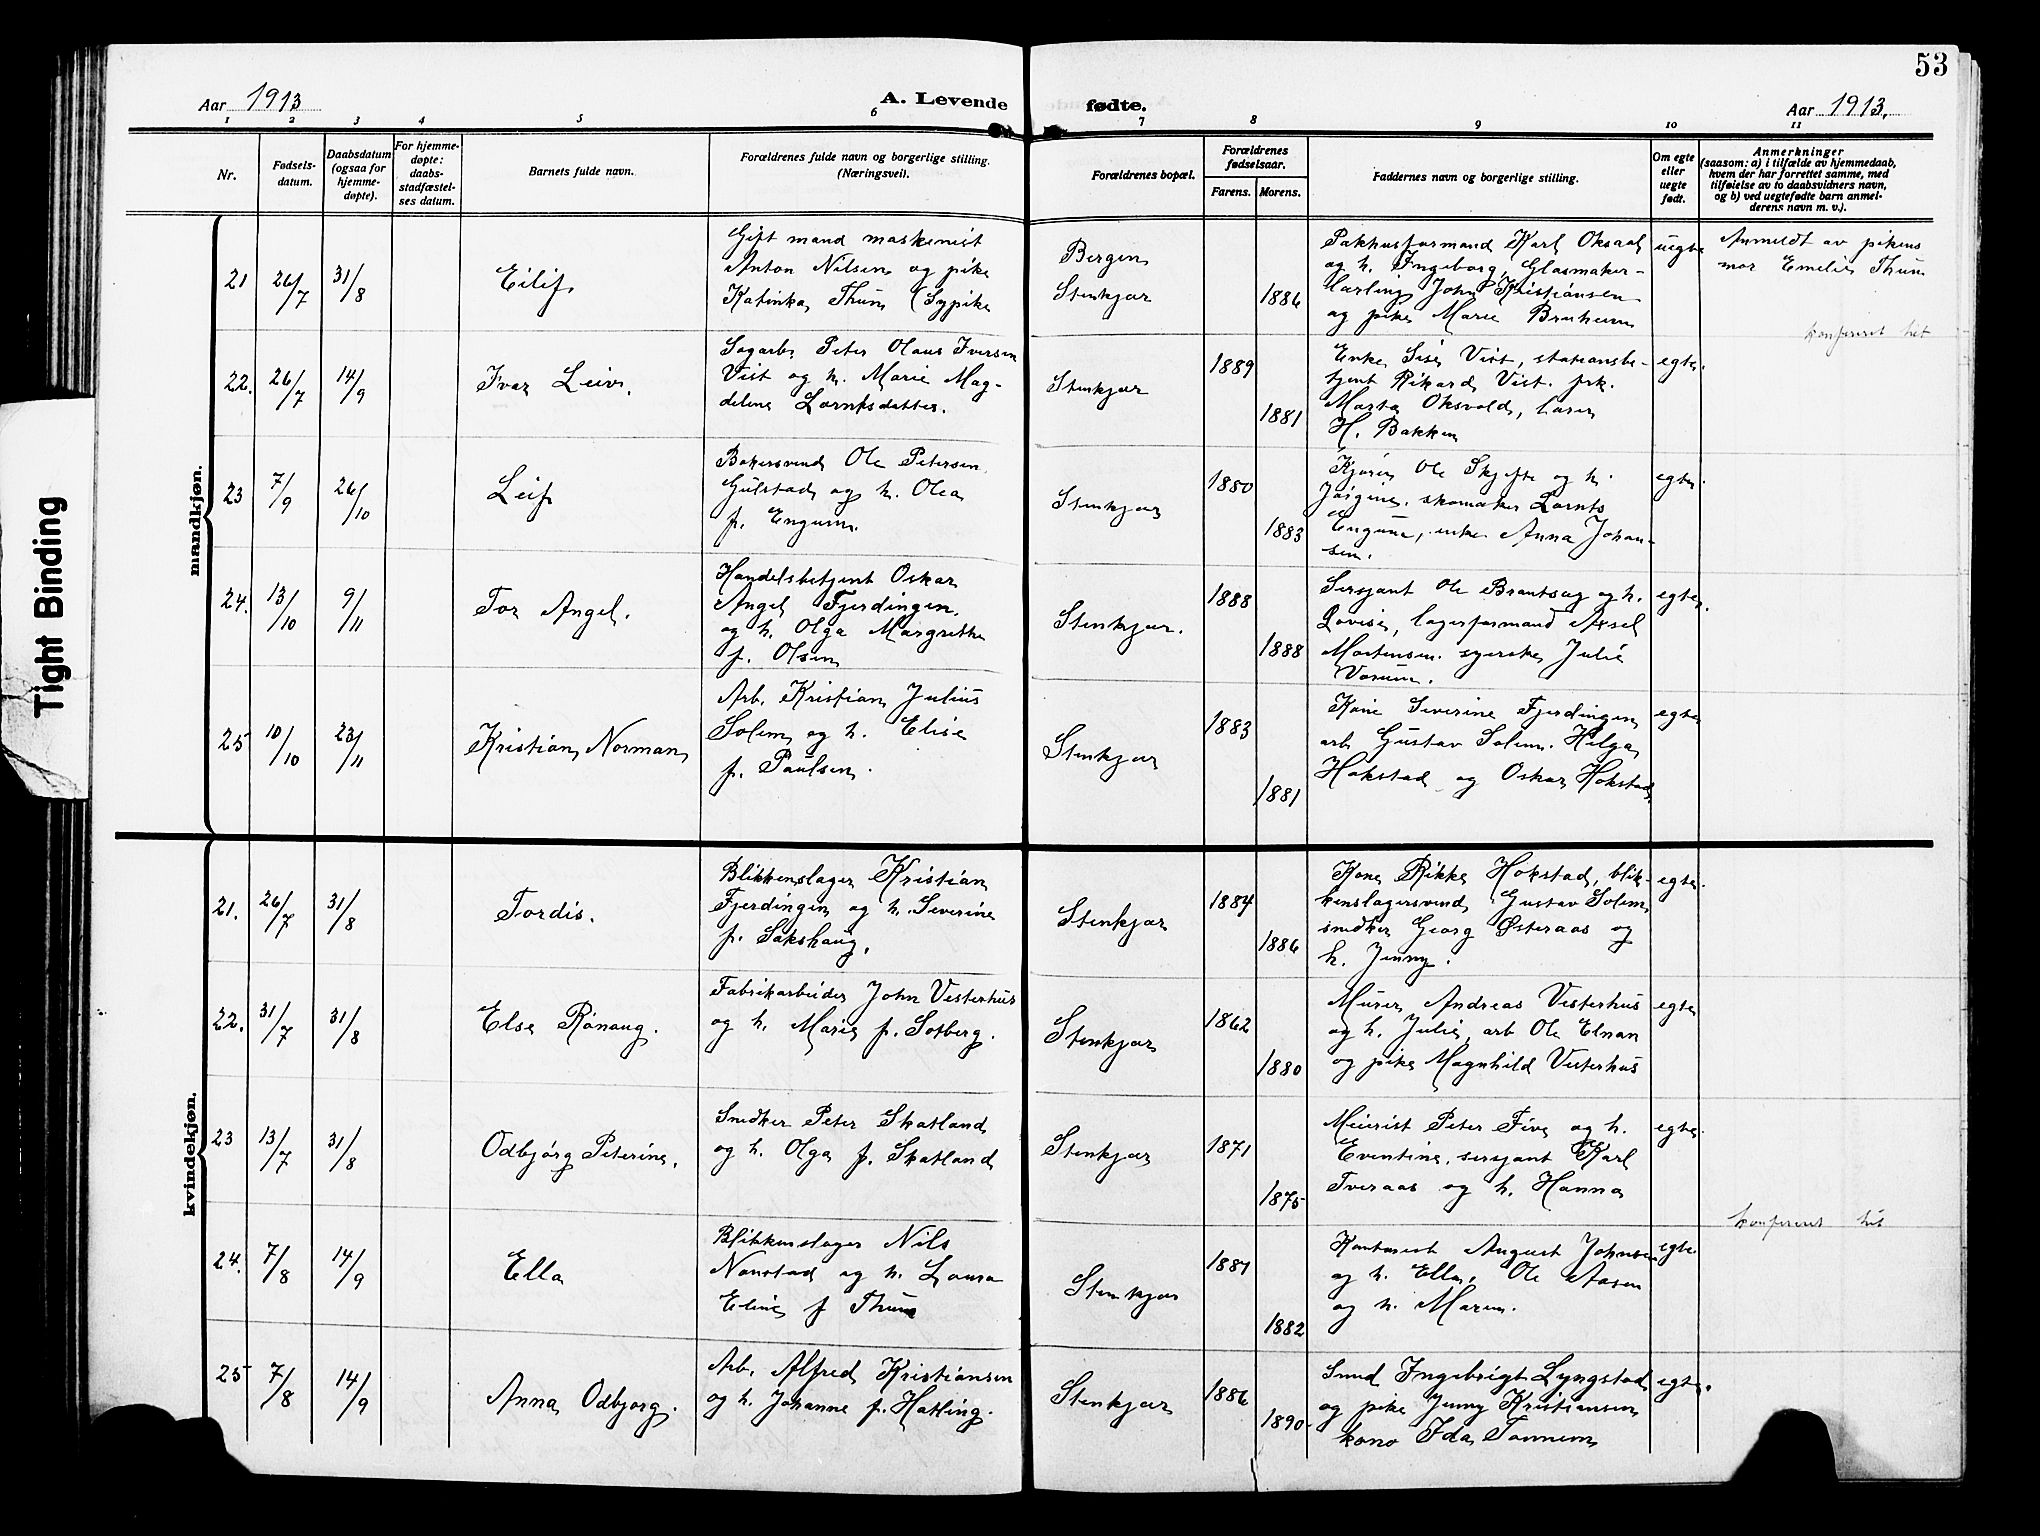 53
Aar 1913
A. Levende
fødte.
Aar 1913.
1 2 3 4 5 6 7 8 9 10 11
Nr.
Fødsels-
datum.
Daabsdatum
(ogsaa for
hjemme-
døpte).
For hjemme-
døpte:
daabs-
stadfæstel-
ses datum.
Barnets fulde navn.
Forældrenes fulde navn og borgerlige stilling.
(Næringsvei).
Forældrenes bopæl.
Forældrenes
fødselsaar.
Farens. Morens.
Faddernes navn og borgerlige stilling.
Om egte
eller
uegte
født.
Anmerkninger
(saasom: a) i tilfælde av hjemmedaab,
hvem der har forrettet samme, med
tilføielse av to daabsvidners navn,
og b) ved uegtefødte barn anmel-
derens navn m. v.).
Tight Binding
mandkjøn.
21
26/7
31/8
Eilif
Gift mand maskinist
Anton Nilsen og pike
Katinka Thun (Sypike
Bergen
Stenkjær
1886
Pakhusformand Karl Oksaal
og h. Ingeborg, Glasmaker-
lærling John Kristiansen
og pike Marie Bruheim
uegte
Anmeldt av pikens
mor Emelie Thun
konfereret hit
22.
26/7
14/9
Ivar Leiv.
Sagarb. Peter Olaus Iversen
Vist og h. Marie Mag-
delena Lorntsdatter.
Stenkjær
1889
1881
Enke Sise Vist, stationsbe-
tjent Rikard Vist. frk.
Marta Oksvold, lærer
H. Bakken
egte.
23
7/9
26/10
Leif
Bakersvend Ole Petersen
Gulstad og h. Olea
f. Engum.
Stenkjær
1880
1883
Kjører Ole Skjefte og h.
Jørgine. skomaker Lornts
Engum, enke Anna Johan-
sen.
egte.
24.
13/10
9/11
Tor Angel.
Handelsbetjent Oskar
Angel Fjerdingen.
og h. Olga Margrethe
f. Olsen
Stenkjær.
1888
1888
Sersjant Ole Brautsag og h.
Lovise, lagerformand Axsel
Mortensen. syerske Julie
egte.
25
10/10
23/11
Kristian Norman
Arb. Kristian Julius
Solem og h. Elise
f. Paulsen.
Stenkjær
1883
1881
Kone Severine Fjerdingen
arb Gustav Solem. Helga
Hokstad og Oskar Hokstad.
egte
kvindekjøn.
21.
26/7
31/8
Tordis.
Blikkenslager Kristian
Fjerdingen og h. Severine
f. Sakshaug.
Stenkjær
1884
1886
Kone Rikke Hokstad, blik-
kenslagersvend Gustav Solem
snedker Georg Østeraas og
h. Jenny.
egte.
22.
31/7
31/8
Else Rønaug.
Fabrikarbeider John Vesterhus
og h. Marie f. Solberg.
Stenkjær
1862
1880
Murer Andreas Vesterhus
og h. Julie, arb Ole Elnan
og pike Magnhild Vesterhus
egte
23
13/7
31/8
Odbjørg Peterine.
Snedker Peter Skatland
og h. Olga f. Skatland
Stenkjær
1871
1875
Meierist Peter Five og h.
Eventine, sersjant Karl
Tveraas og h. Hanna
egte.
24.
7/8
14/9
Ella
Blikkenslager Nils
Naustad og h. Laura
Eline f Thun
Stenkjær
1881
1882
Kontorist August Johnsen
og h. Ella, Ole Aasen
og h. Maren.
egte.
konfereret hit
25
7/8
14/9
Anna Odbjørg.
Arb. Alfred Kristiansen
og h. Johanne f. Hatling.
Stenkjær
1886
1890
Smed Ingebrigt Lyngstad
og pike Jenny Kristiansen
kone Ida Tannem
egte.